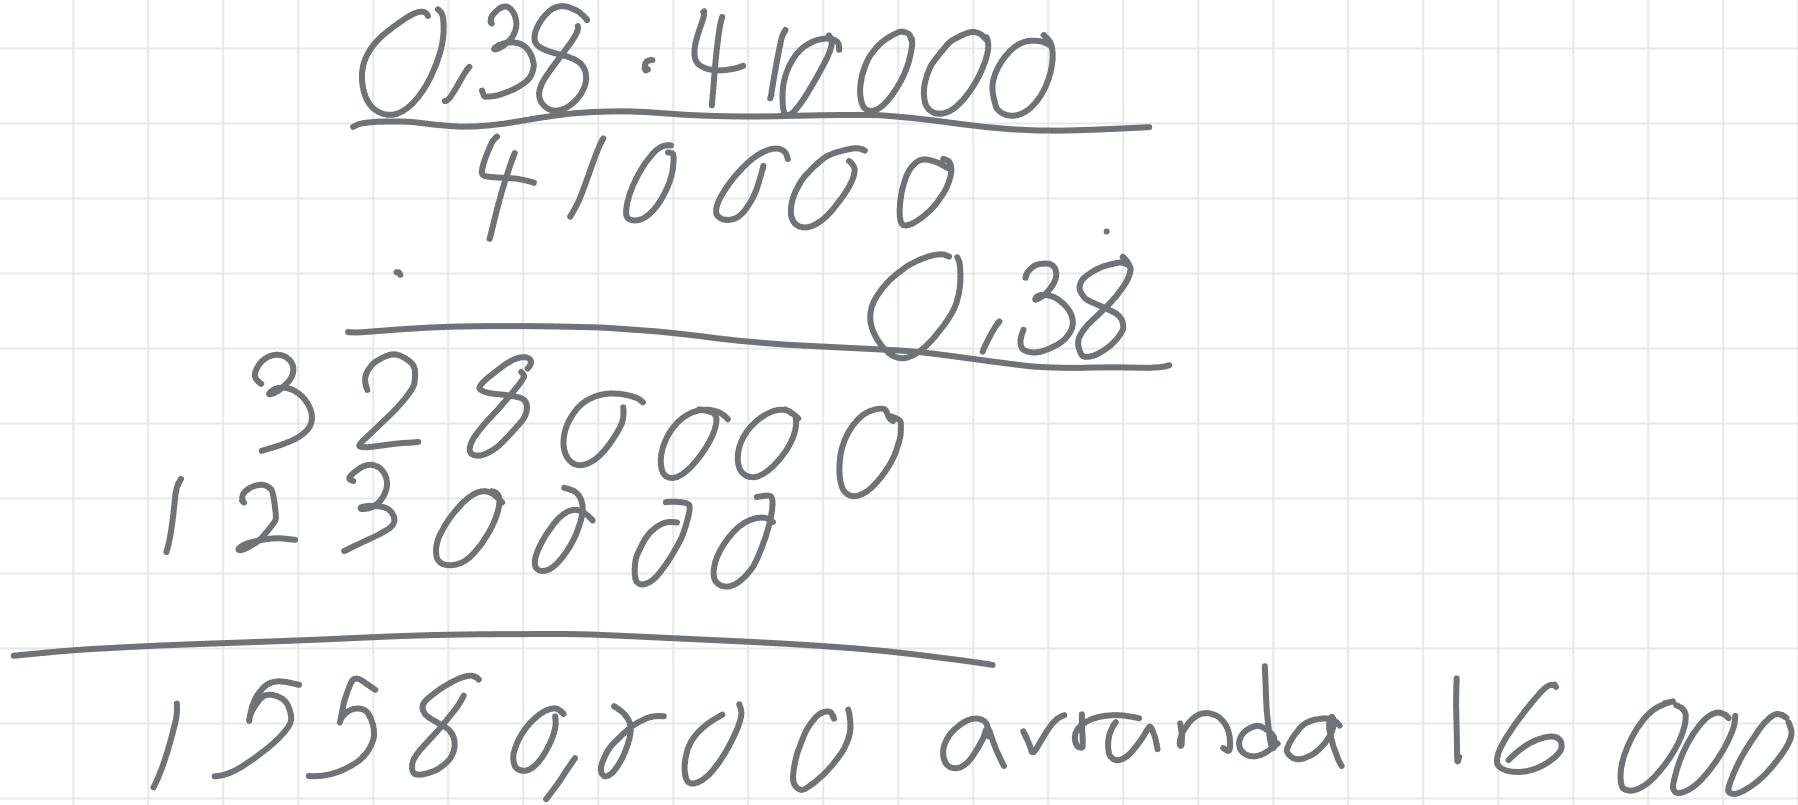 0,38 · 410000
410000
0,38
3280000
1230000
15580,000 avrunda 16 000